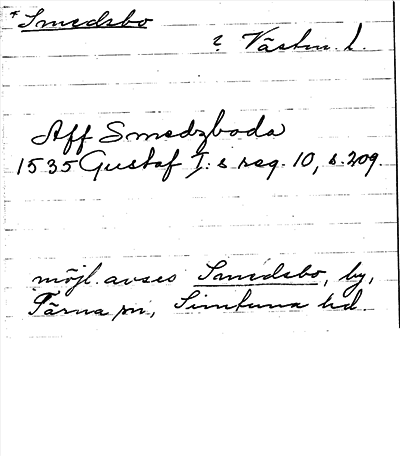 *Smedsbo
i Västm. l.
Aff Smedzboda
1535 Gustaf I:s reg. 10, s. 209.
möjl. avses Smedsbo, by,
Tärna sn., Simtuna hd.